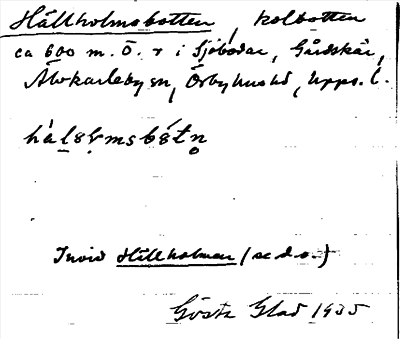 Hållholmsbotten, kolbotten
ca 600 m. Ö. r i Sjöbodar, Gårdskär,
Älvkarleby sn, Örbyhus hd, Upps. l.
Invid Hållholmen (se d. o.)
Gösta Glad 1935